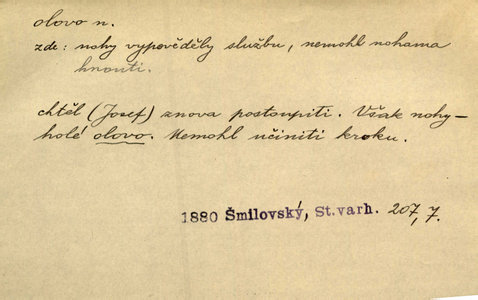 olovo n.
zde: nohy vypověděly službu, nemohl nohama
hnouti.
chtěl (Josef) znova postoupiti. Však nohy –
holé olovo. Nemohl učiniti kroku.
1880 Šmilovský, St.varh. 207, 7.